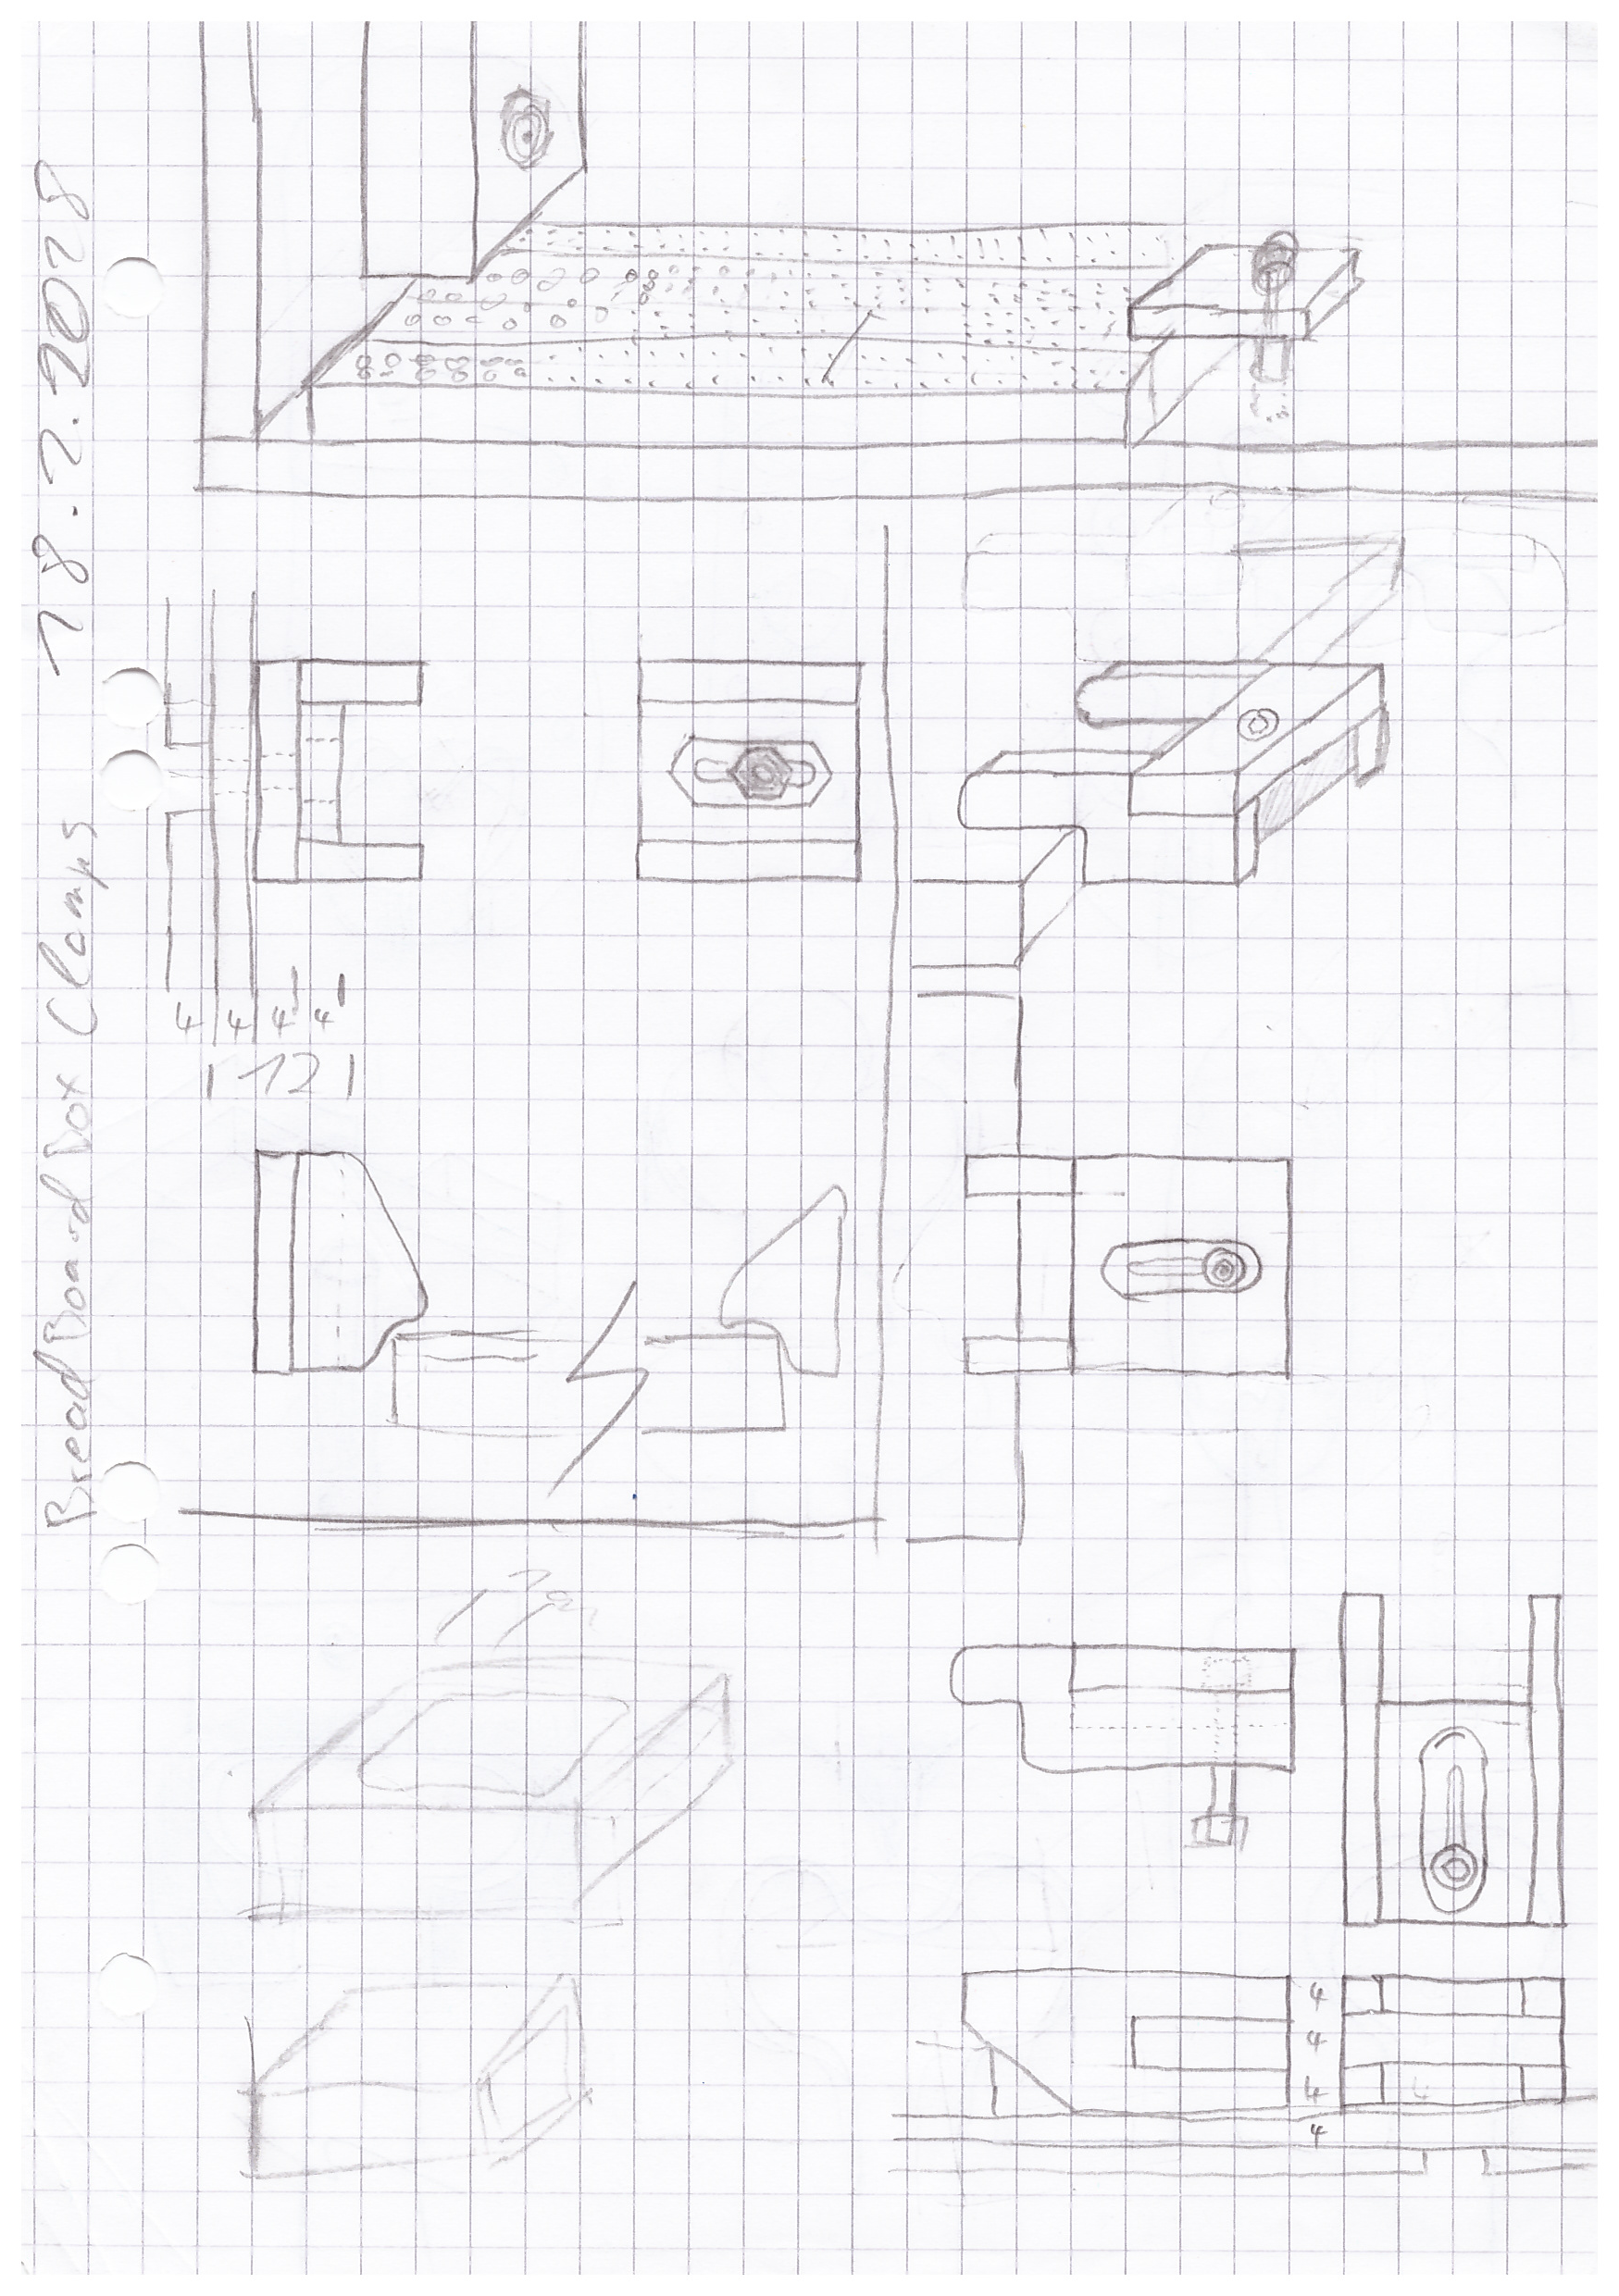 BreadBoard Box Clamps 18.2.2018
4 4 4 4
12
4
4
4 4
4